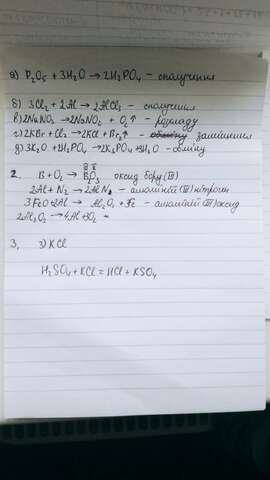 а) P₂O₅ + 3H₂O → 2H₃PO₄ – сполучення
б) 3Cl₂ + 2Al → 2AlCl₃ – сполучення
в) 2NaNO₃ → 2NaNO₂ + O₂↑ – розкладу
г) 2KBr + Cl₂ → 2KCl + Br₂↑ – заміщення
д) 3K₂O + 2H₃PO₄ → 2K₃PO₄ + 3H₂O – обміну
2. B + O₂ → B₂O₃ оксид бору (III)
2Al + N₂ → 2AlN – алюміній (III) нітроген
3FeO + 2Al → Al₂O₃ + Fe – алюміній (III) оксид
2Al₂O₃ → 4Al + 3O₂ =
3, з) KCl
H₂SO₄ + KCl = HCl + KSO₄